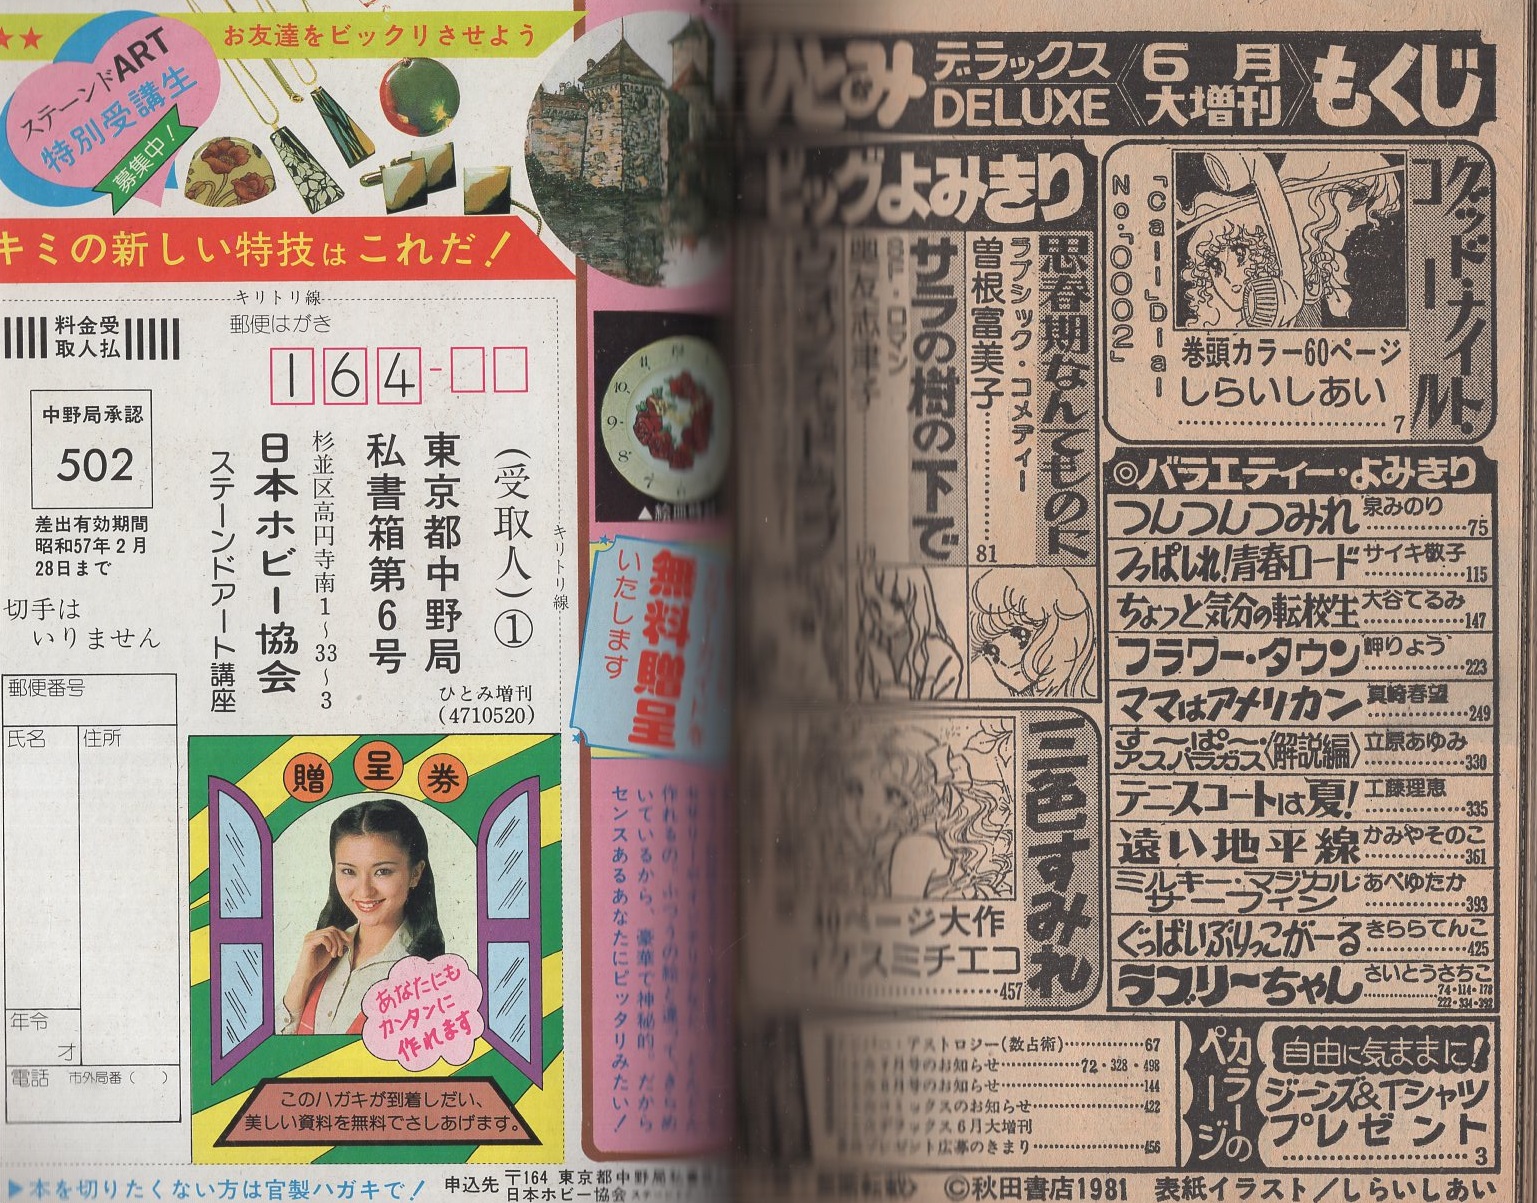 お友達をビックリさせよう
ステーンドART
特別受講生
募集中！
キミの新しい特技はこれだ！
キリトリ線
郵便はがき
料金受
取人払
164-
中野局承認
502
差出有効期間
昭和57年2月
28日まで
切手は
いりません
(受取人)①
東京都中野局
私書箱第6号
杉並区高円寺南1～33～3
日本ホビー協会
ステーンドアート講座
キリトリ線
ひとみ増刊
(4710520)
郵便番号
氏名
住所
年令
才
電話 市外局番( )
贈呈券
あなたにも
カンタンに
作れます
このハガキが到着しだい、
美しい資料を無料でさしあげます。
▶本を切りたくない方は官製ハガキで！
申込先
〒164 東京都中野局私
日本ホビー協会
無料贈呈
いたします
いているから、豪華で神秘的。だから
センスあるあなたにピッタリみたい！
ひとみ
デラックス
DELUXE
《6月
大増刊》
もくじ
グッド・ナイト・
コール
「Call」Dial
No.「0002」
巻頭カラー60ページ
しらいしあい
7
ビッグよみきり
思春期なんてものに
ラブシック・コメディー
曽根富美子
81
サラの樹の下で
SF・ロマン
三色すみれ
ページ大作
ケスミチエコ
457
◎バラエティー・よみきり
つんつんつみれ 泉みのり 75
つっぱしれ！青春ロード サイキ敬子 115
ちょっと気分の転校生 大谷てるみ 147
フラワー・タウン 岬りょう 223
ママはアメリカン 真崎春望 249
す〜ぱ〜アスパラガス〈解説編〉 立原あゆみ 330
テニスコートは夏！ 工藤理恵 335
遠い地平線 かみやそのこ 361
ミルキー・マジカル・サーフィン あべゆたか 393
ぐっばいぶりっこがーる きららてんこ 425
ラブリーちゃん さいとうさちこ 74・114・178
222・334・392
アストロジー(数占術) 67
月号のお知らせ 72・328・498
月号のお知らせ 144
ミックスのお知らせ 422
デラックス6月大増刊
プレゼント応募のきまり 456
カラーの
ページ
自由に気ままに！
ジーンズ&Tシャツ
プレゼント
3
©秋田書店1981 表紙イラスト/しらいしあい